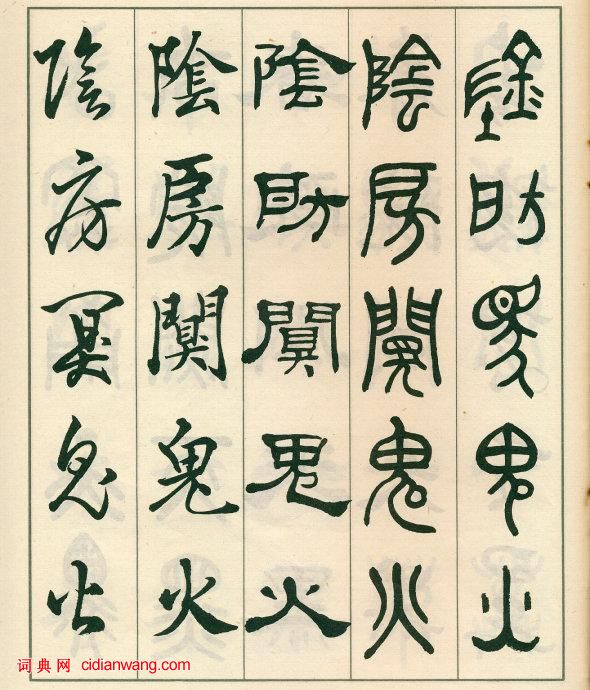 陰房闃鬼火
陰房闃鬼火
陰房闃鬼火
陰房闃鬼火
陰房闃鬼火
词典网 cidianwang.com